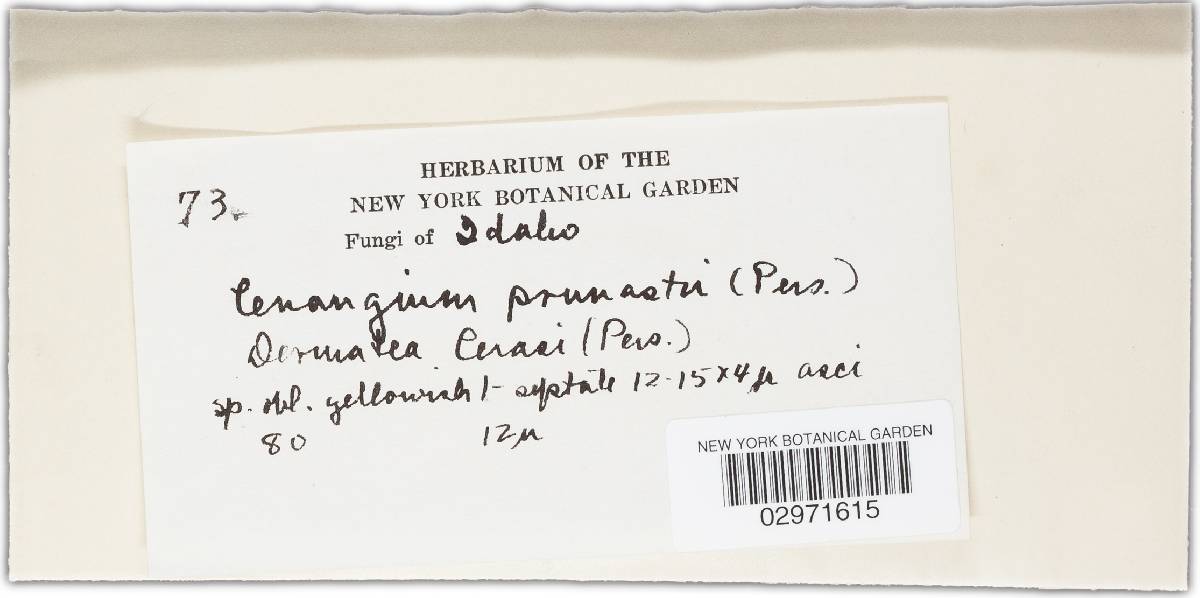 HERBARIUM OF THE
73. NEW YORK BOTANICAL GARDEN
Fungi of Idaho
Cenangium prunastri (Pers.)
Dermatea Cerasi (Pers.)
sp. obl. yellowish 1-septate 12-15 x 4 µ asci
80 12 µ
NEW YORK BOTANICAL GARDEN
02971615